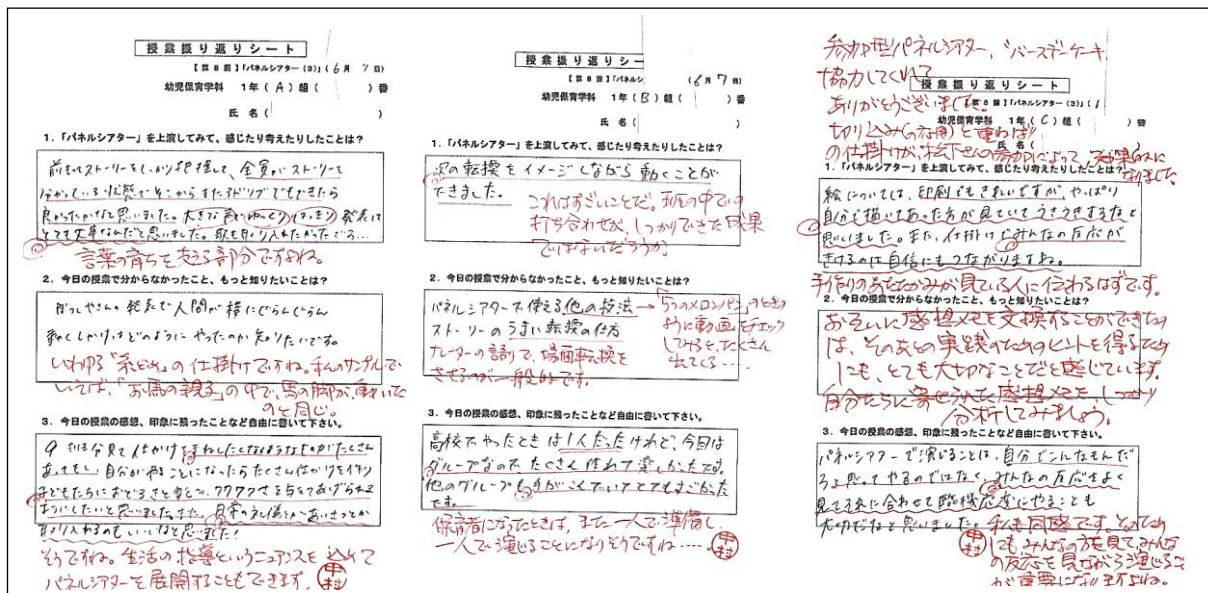 授業振り返りシート
【第8回】「パネルシアター（3）」（6月7日）
幼児保育学科 1年（A）組（ ）番
氏名（ ）
1.「パネルシアター」を上演してみて、感じたり考えたりしたことは？
前もってストーリーをしっかり把握して、全員がストーリーを
分かっている状態でそこからまたアドリブでもできたら
良かったかなと思いました。大きな声でゆっくりはっきり発表は
とても大事なんだと思いました。歌も取り入れたかったでる…
言葉の育ちを支える部分ですよね。
2. 今日の授業で分からなかったこと、もっと知りたいことは？
発表で人間が横にぐらんぐらん
動くしかけはどのようにやったのか知りたいです。
いわゆる「糸どめ」の仕掛けですね。私のサンプルで
いえば、「お馬の親子」の中で、馬の脚が、動いた
のと同じ。
3. 今日の授業の感想、印象に残ったことなど自由に書いて下さい。
仕かけをまねしたくなるようなものがたくさん
あってもし、自分がやることになったらたくさん仕かけを作り
子どもたちにおどろきと楽しさ、ワクワクさを与えてあげられる
ようにしたいと思いました。また、日常の礼儀とかあいさつとか
取り入れるのもいいなと思いました！
そうですね。生活の指導というニュアンスを込めて
パネルシアターを展開することもできます。
中村
授業振り返りシー
【第8回】「パネルシ （6月7日）
幼児保育学科 1年（B）組（ ）番
氏名（ ）
1.「パネルシアター」を上演してみて、感じたり考えたりしたことは？
次の転換をイメージしながら動くことが
できました。
これはすごいことだ。班の中での
打ち合わせが、しっかりできた成果
ではないだろうか。
2. 今日の授業で分からなかったこと、もっと知りたいことは？
パネルシアターで使える他の技法
ストーリーのうまい転換の仕方
→「5つのメロンパン」のときの
ように動画をチェック
してみると、たくさん
出てくる…
ナレーターの語りで、場面転換を
させるのが一般的です。
3. 今日の授業の感想、印象に残ったことなど自由に書いて下さい。
高校でやったときは1人だったけれど、今回は
グループなので、たくさん作れて楽しかったです。
他のグループも手がこんでいてとてもすごかった
です。
保育者になったときは、また一人で準備し、
一人で演じることになりそうですね……。
中村
参加型パネルシアター、バースデーケーキ
協力してくれて
ありがとうございました。
切り込み(の活用)と重ねばり
の仕掛けが、松下さんの参加によって、効果的に
なりました
授業振り返りシート
第8回】「パネルシアター（3）」（
幼児保育学科 1年（C）組（ ）番
氏名（
1.「パネルシアター」を上演してみて、感じたり考えたりしたことは？
絵については、印刷でもきれいですが、やっぱり
自分で描いてあった方が見ていてうきうきするなと
思いました。また、仕掛けでみんなの反応が
きけるのは自信にもつながりますね。
手作りのあたたかみが見ている人に伝わるはずです。
2. 今日の授業で分からなかったこと、もっと知りたいことは？
お互いに感想メモを交換することができたの
は、そのあとの実践のためのヒントを得るため
にも、とても大切なことだと感じています。
自分たちに寄せられた感想メモを、しっかり
分析してみましょう。
3. 今日の授業の感想、印象に残ったことなど自由に書いて下さい。
パネルシアターで演じることは、自分でこんなもんだ
ろと思ってやるのではなく、みんなの反応をよく
見てそれに合わせて臨機応変にやることも
大切だなと思いました。
私も同感です。そのため
にもみんなの方を見て、みんな
の反応を見ながら演じること
が重要になりますよね。
中村